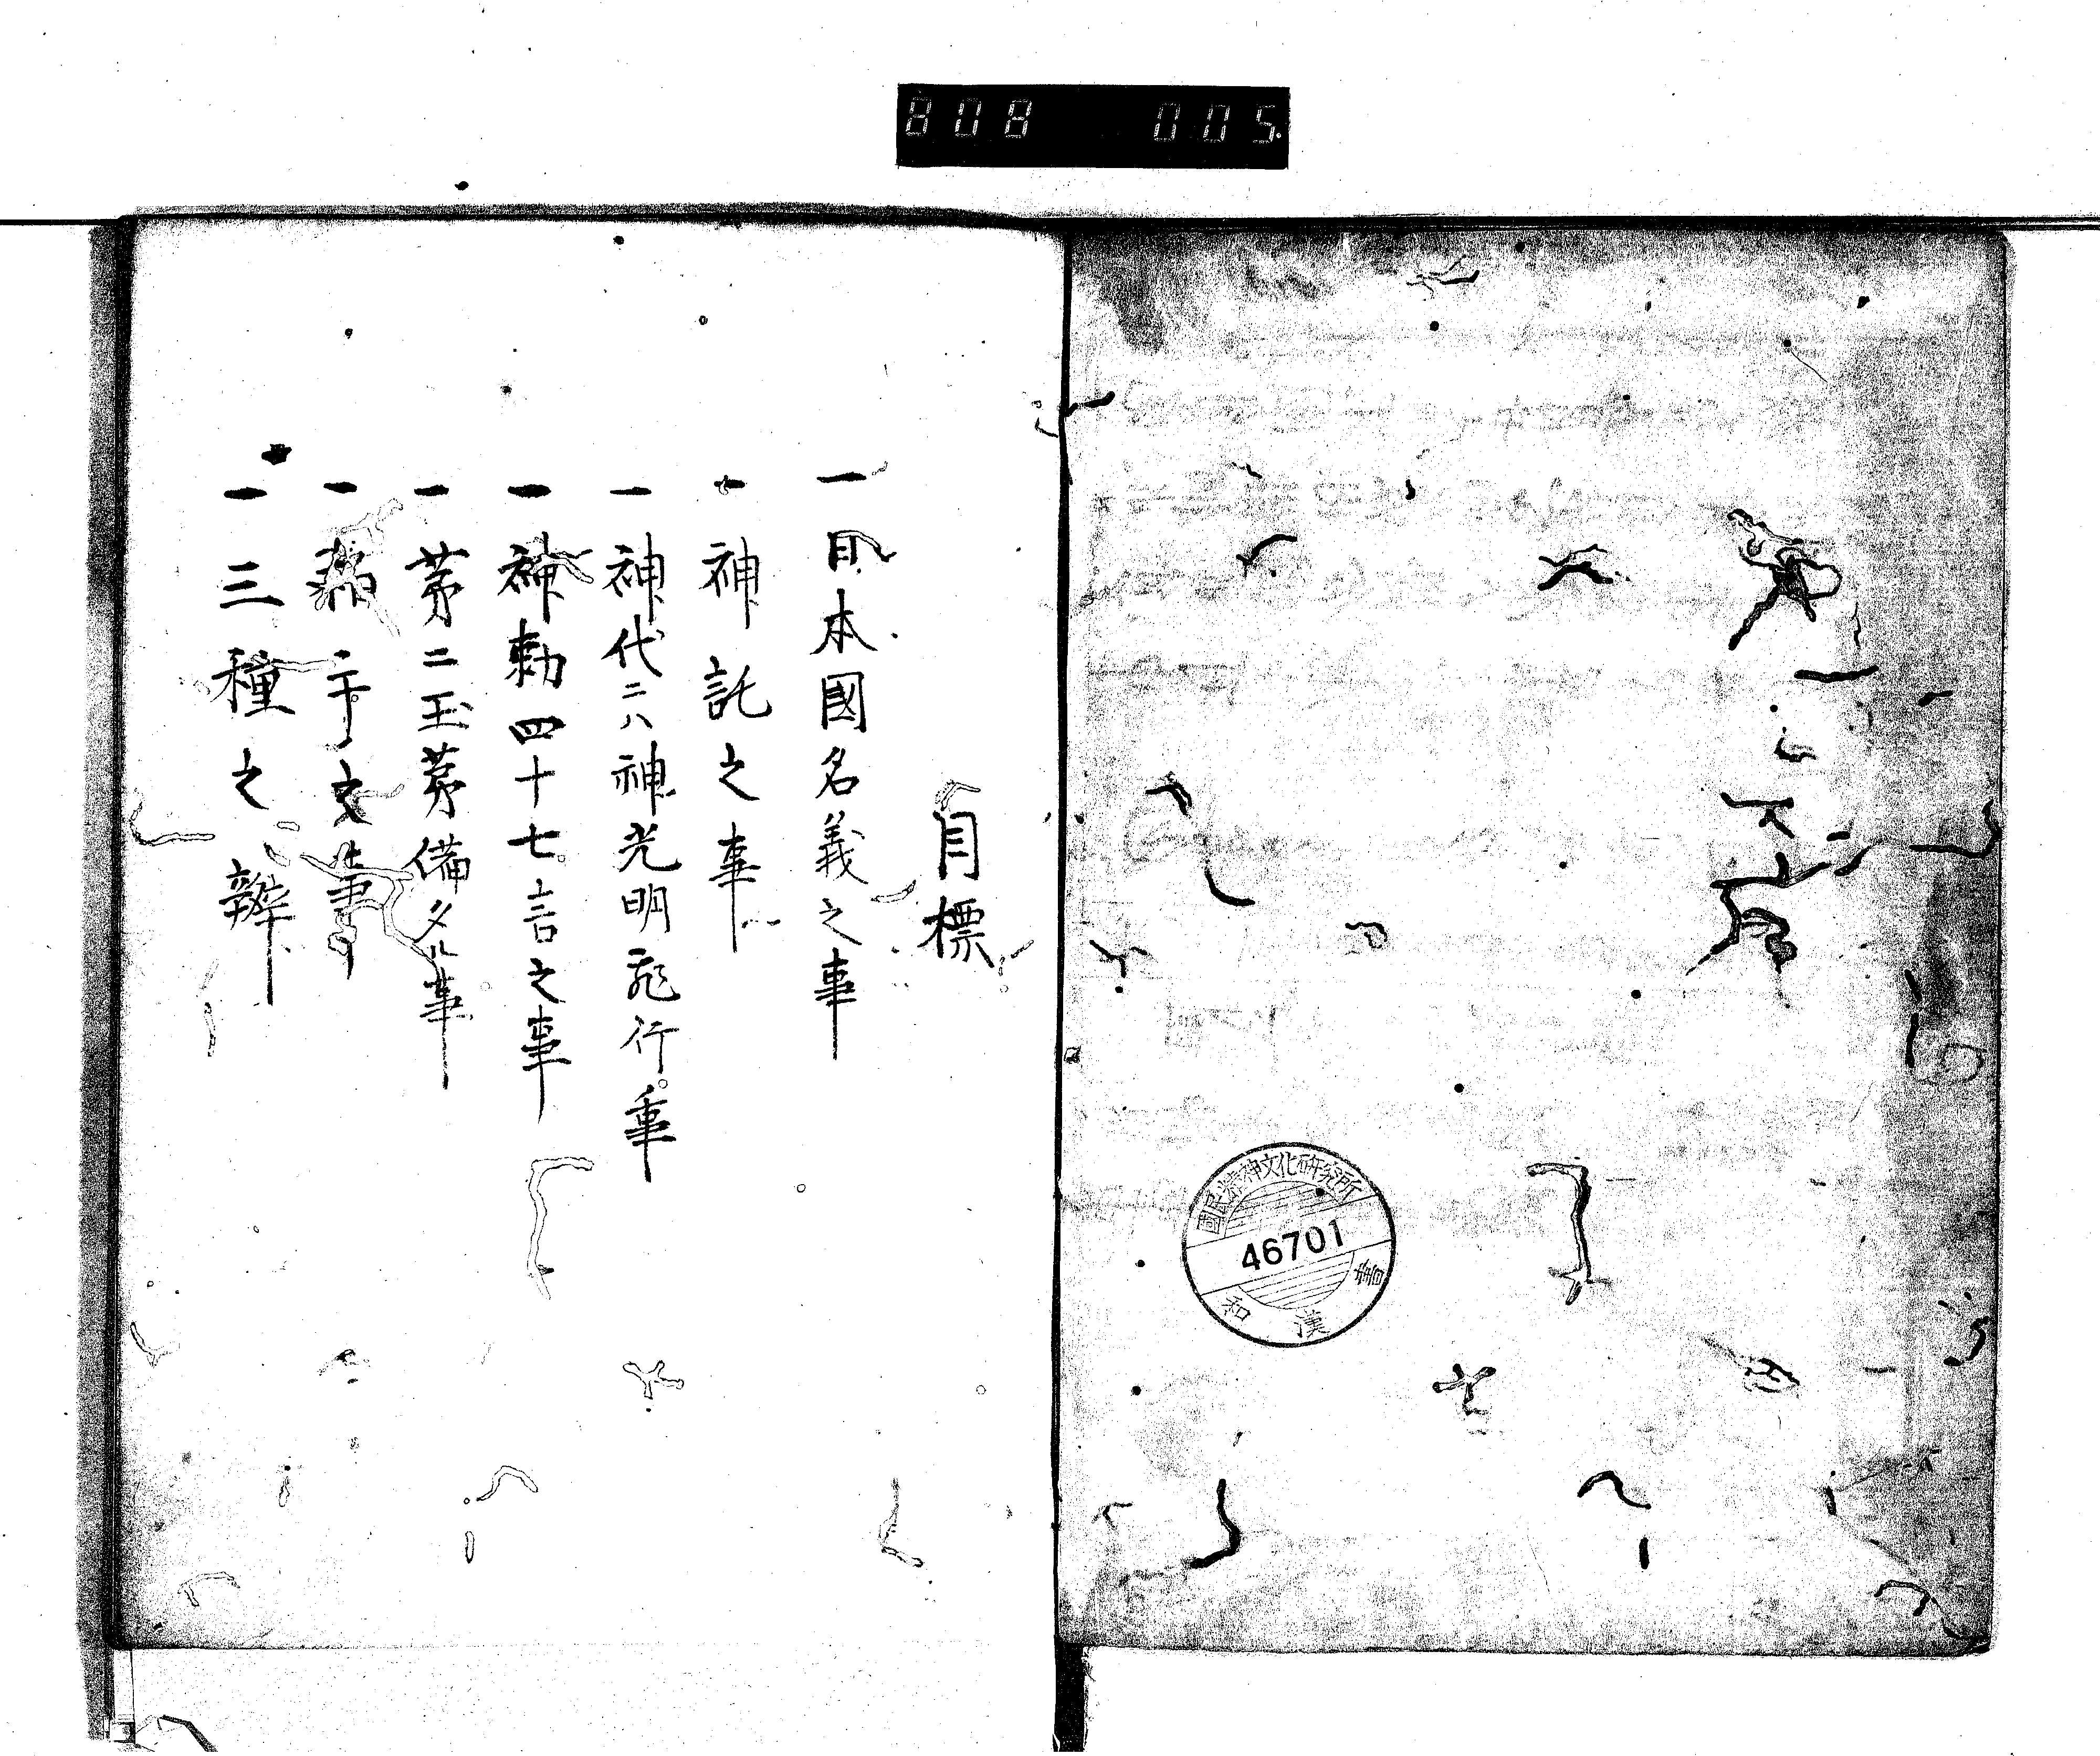 808 005
目標
一日本國名義之事
一神託之事
一神代ニハ神光明飛行事
一神勅四十七言之事
一第二玉第備タル事
一 字文事
一三種之辨
國民精神文化研究所
46701
和漢書